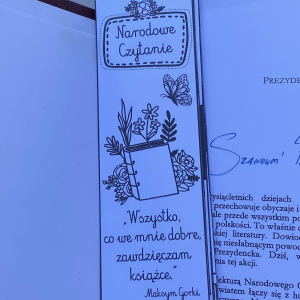 Narodowe
Czytanie
„Wszystko,
co we mnie dobre,
zawdzięczam
książce."
Maksym Gorki
PREZYDE
SZANOWNI
ysiącletnich dziejach
przechowuje obyczaje i
ale przede wszystkim po
polskości. To właśnie c
kiej literatury. Dowio
się niesłabnącym powod
Prezydencka. Dziś, w
nia tej akcji.
Lekturą Narodowego C
wiatem łączy się z h